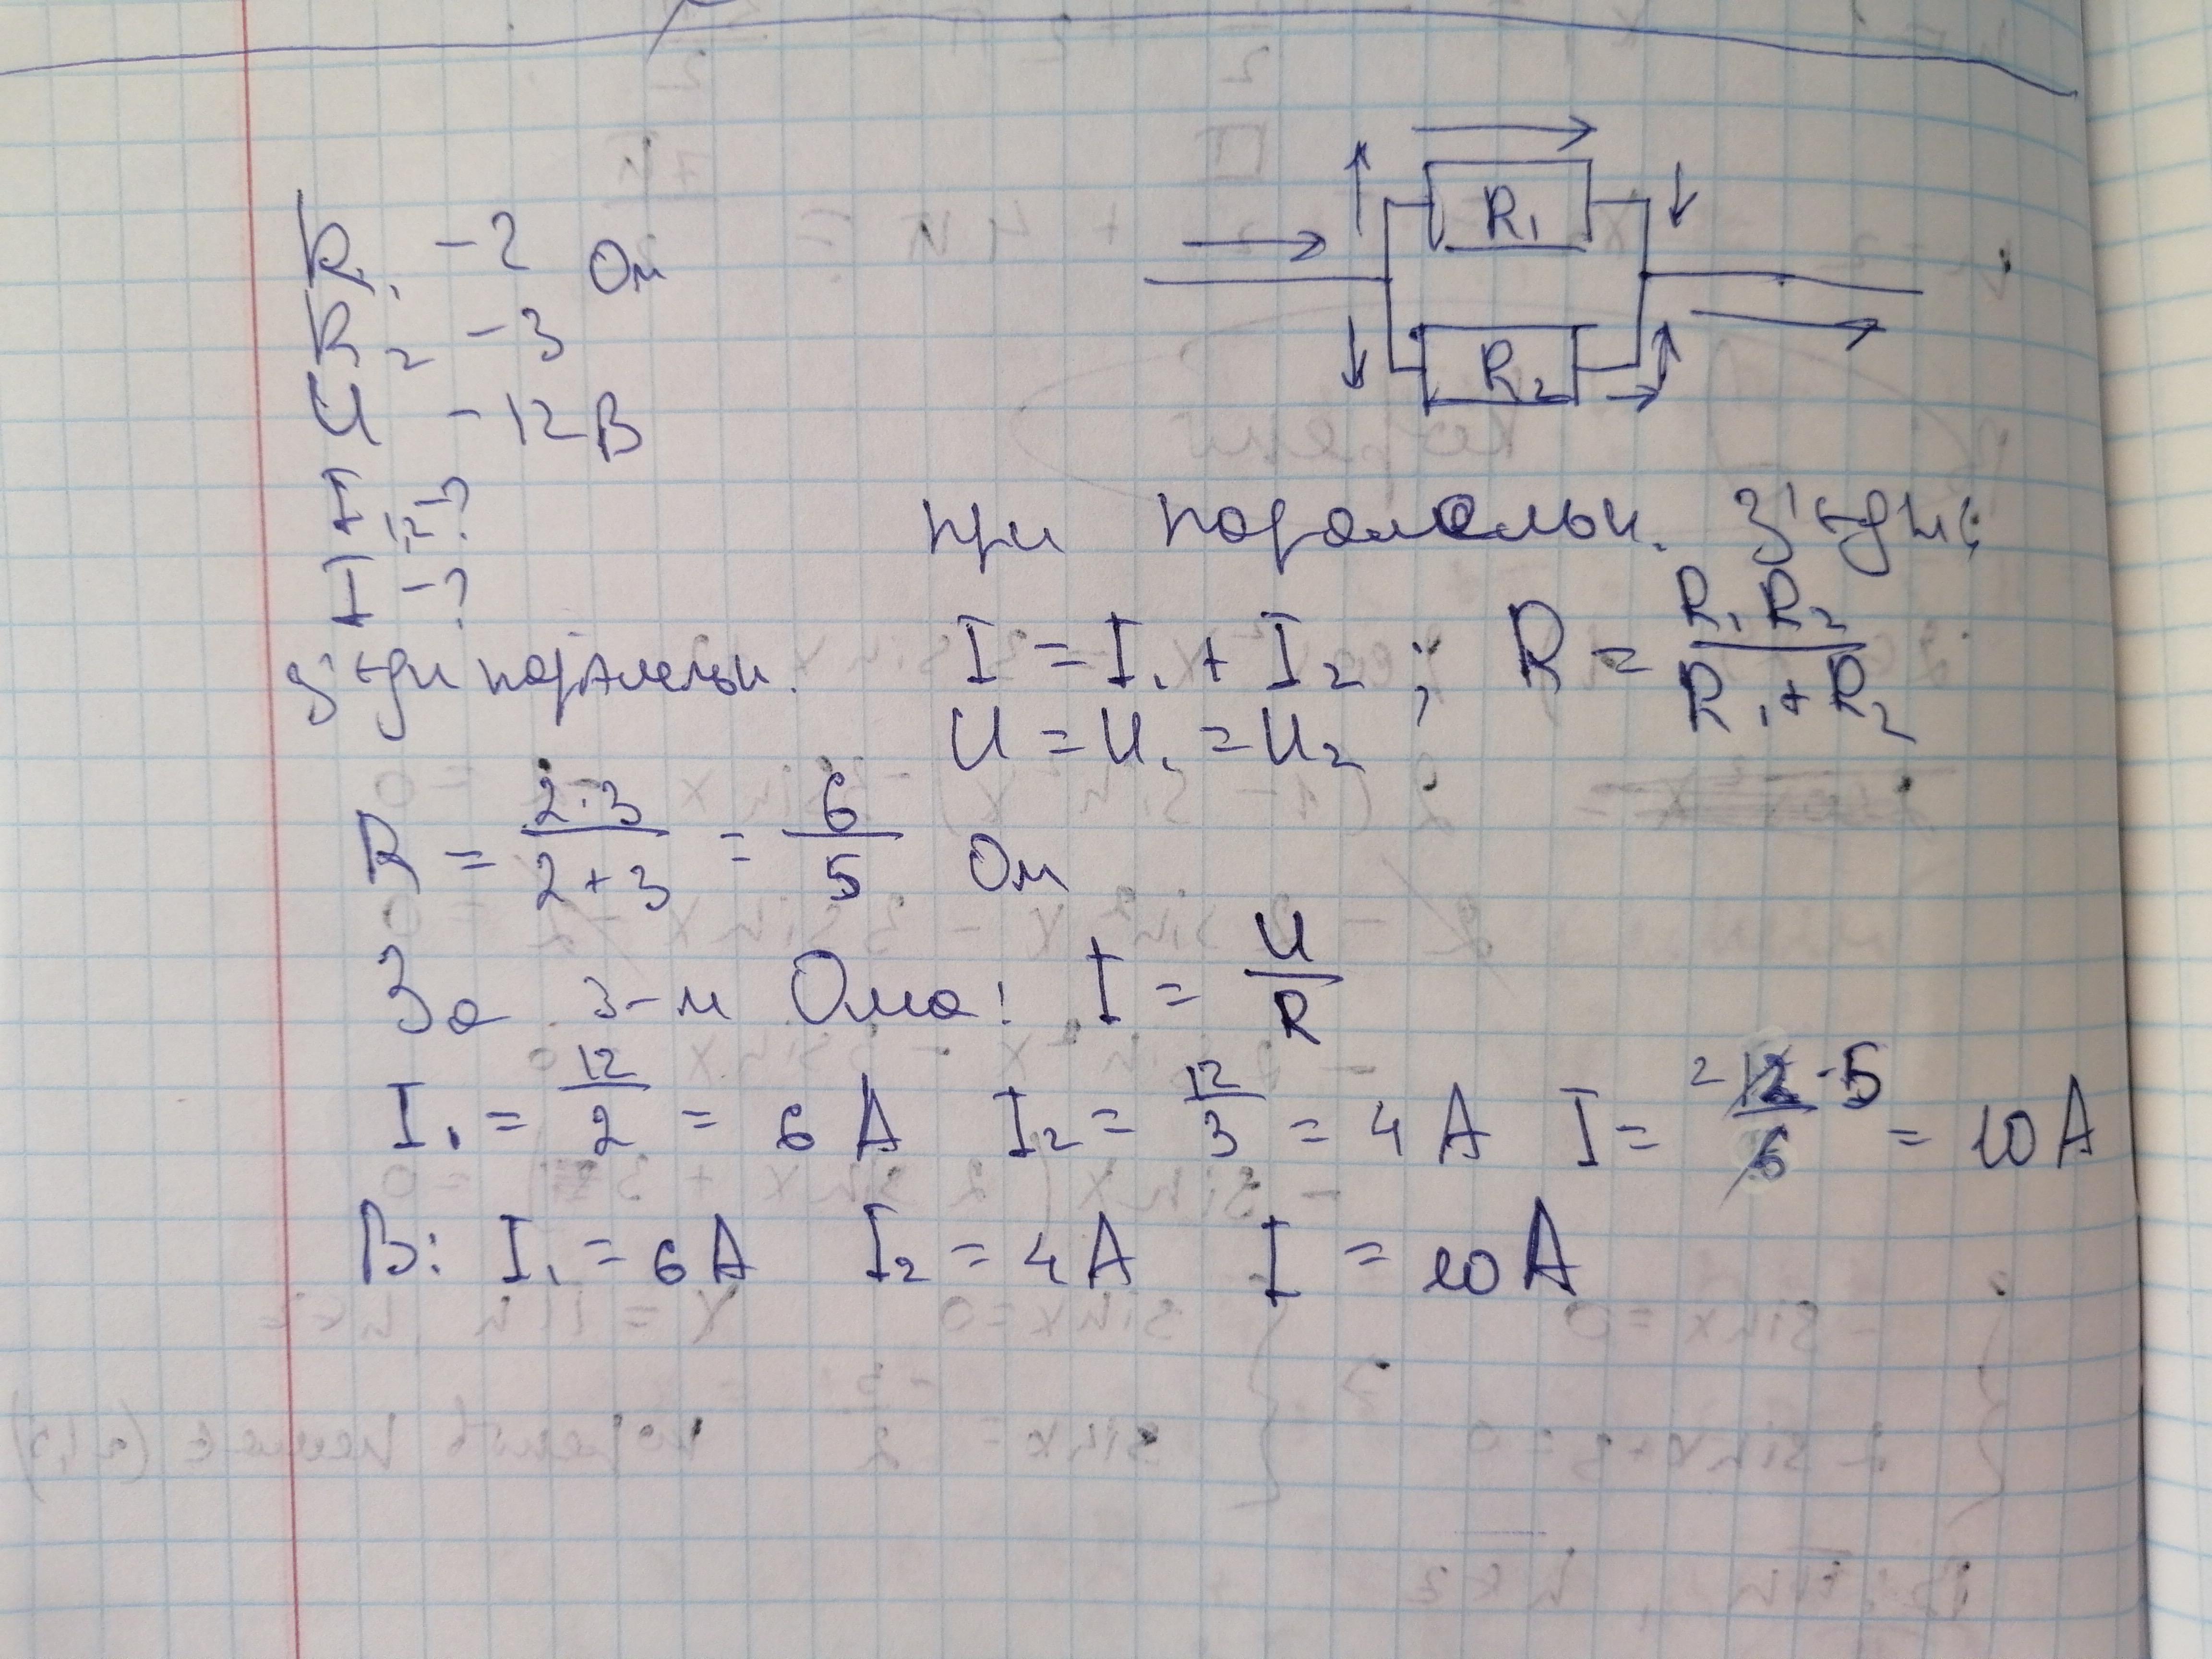 R₁ - 2 Ом
R₂ - 3
U - 12 В
I₁,₂ - ?
I - ?
з'єдн паралельн.
R₁
R₂
при паралельн. з'єдн:
I = I₁ + I₂ ; R = R₁ R₂ / R₁ + R₂
U = U₁ = U₂
R = 2·3 / 2+3 = 6/5 Ом
За з-м Ома: I = U/R
I₁ = 12/2 = 6 А I₂ = 12/3 = 4 А I = 12·5/6 = 10 А
В: I₁ = 6 А I₂ = 4 А I = 10 А